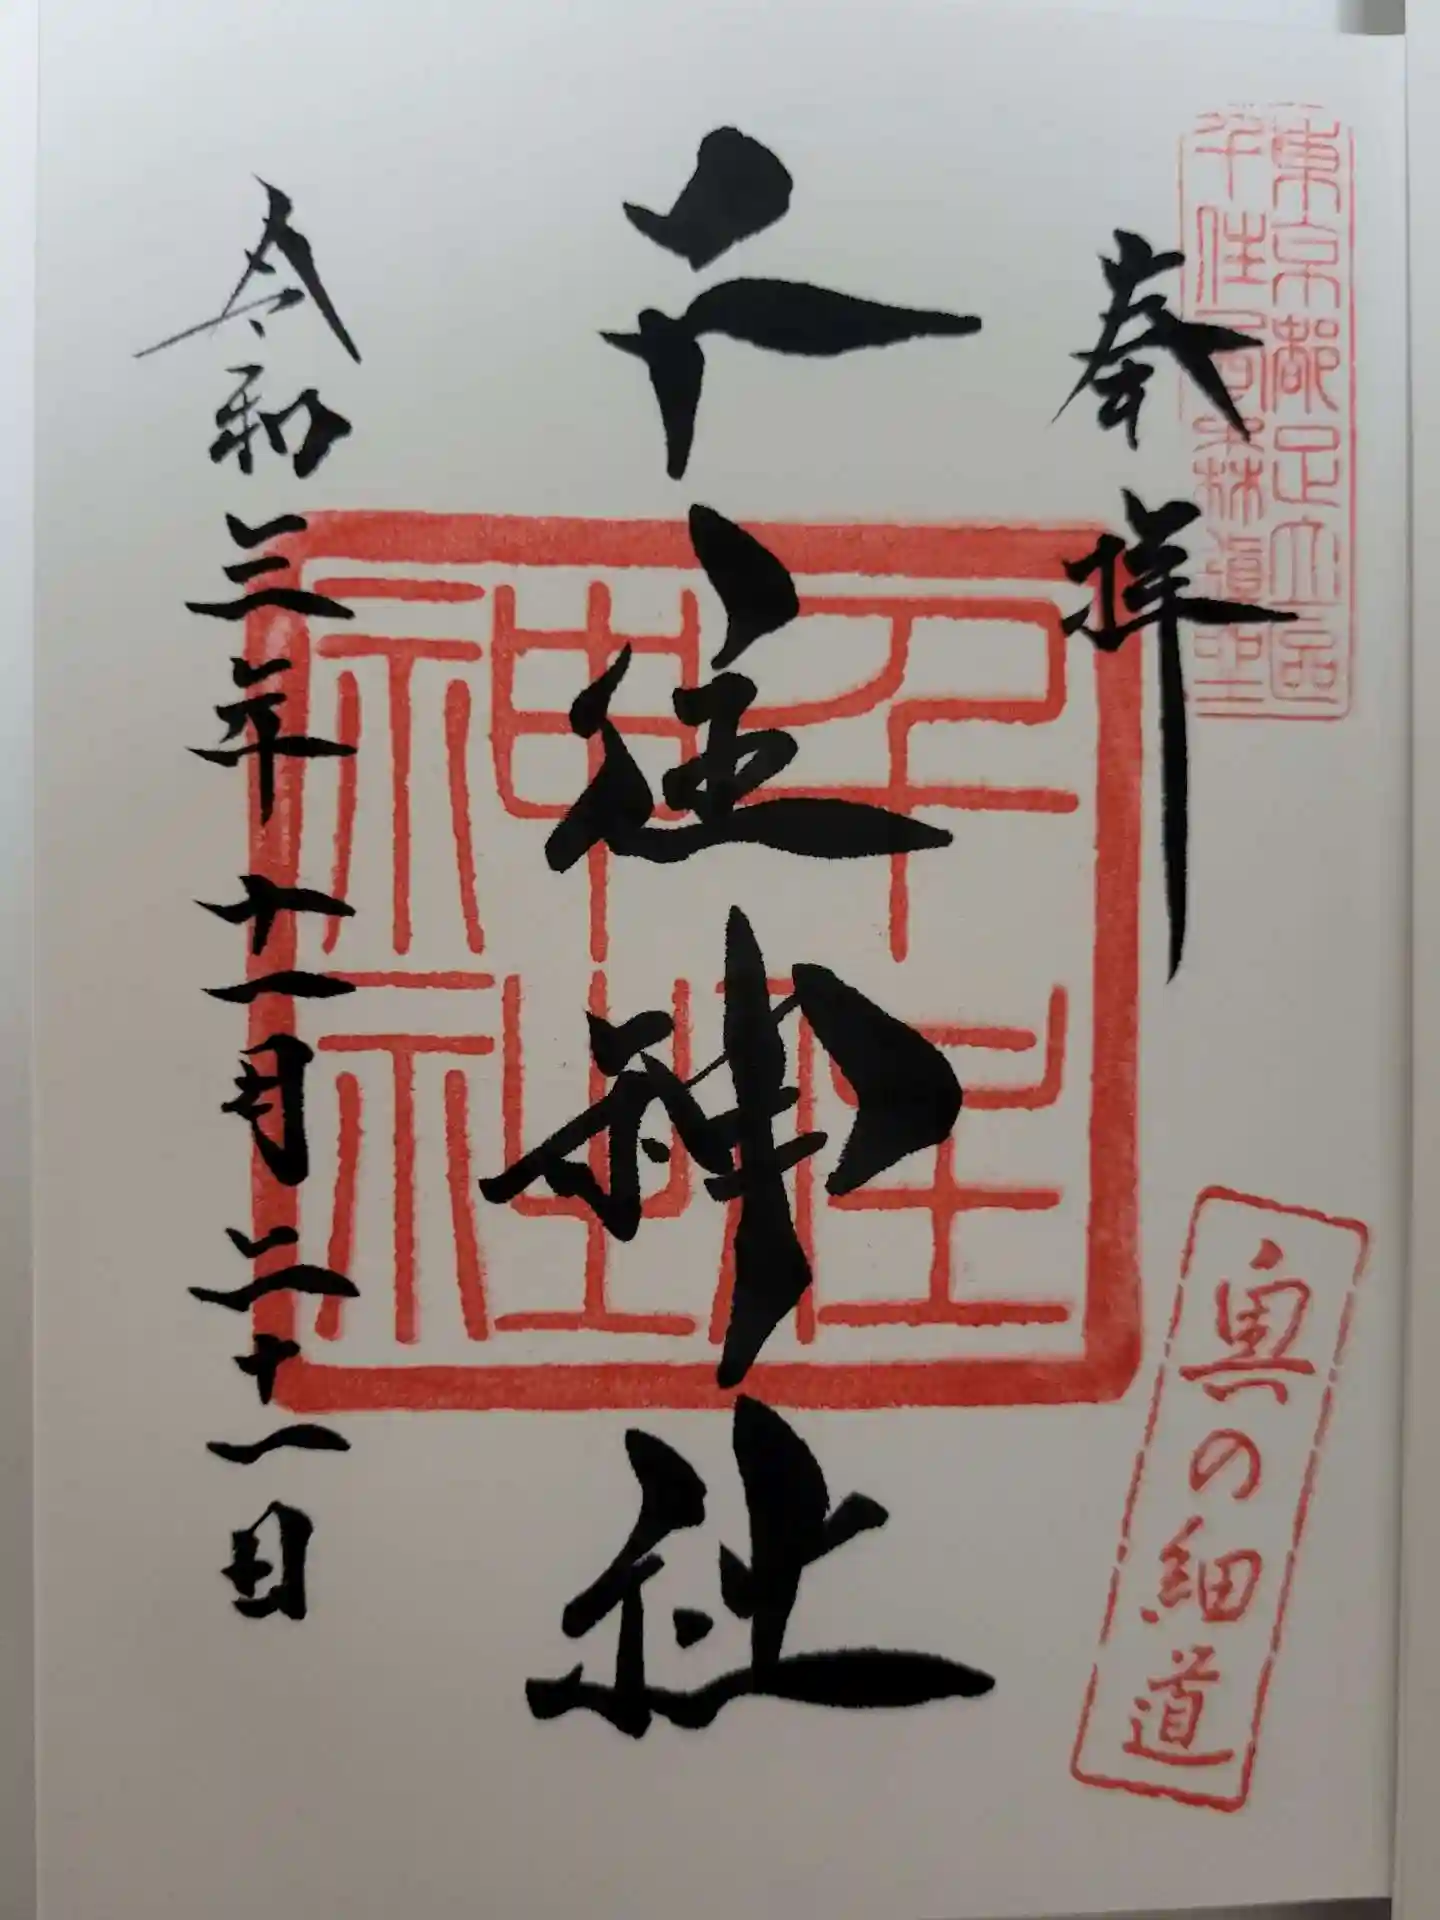 東京都足立区
奉拝
奥の細道
千住神社
千住神社
令和三年十一月二十一日